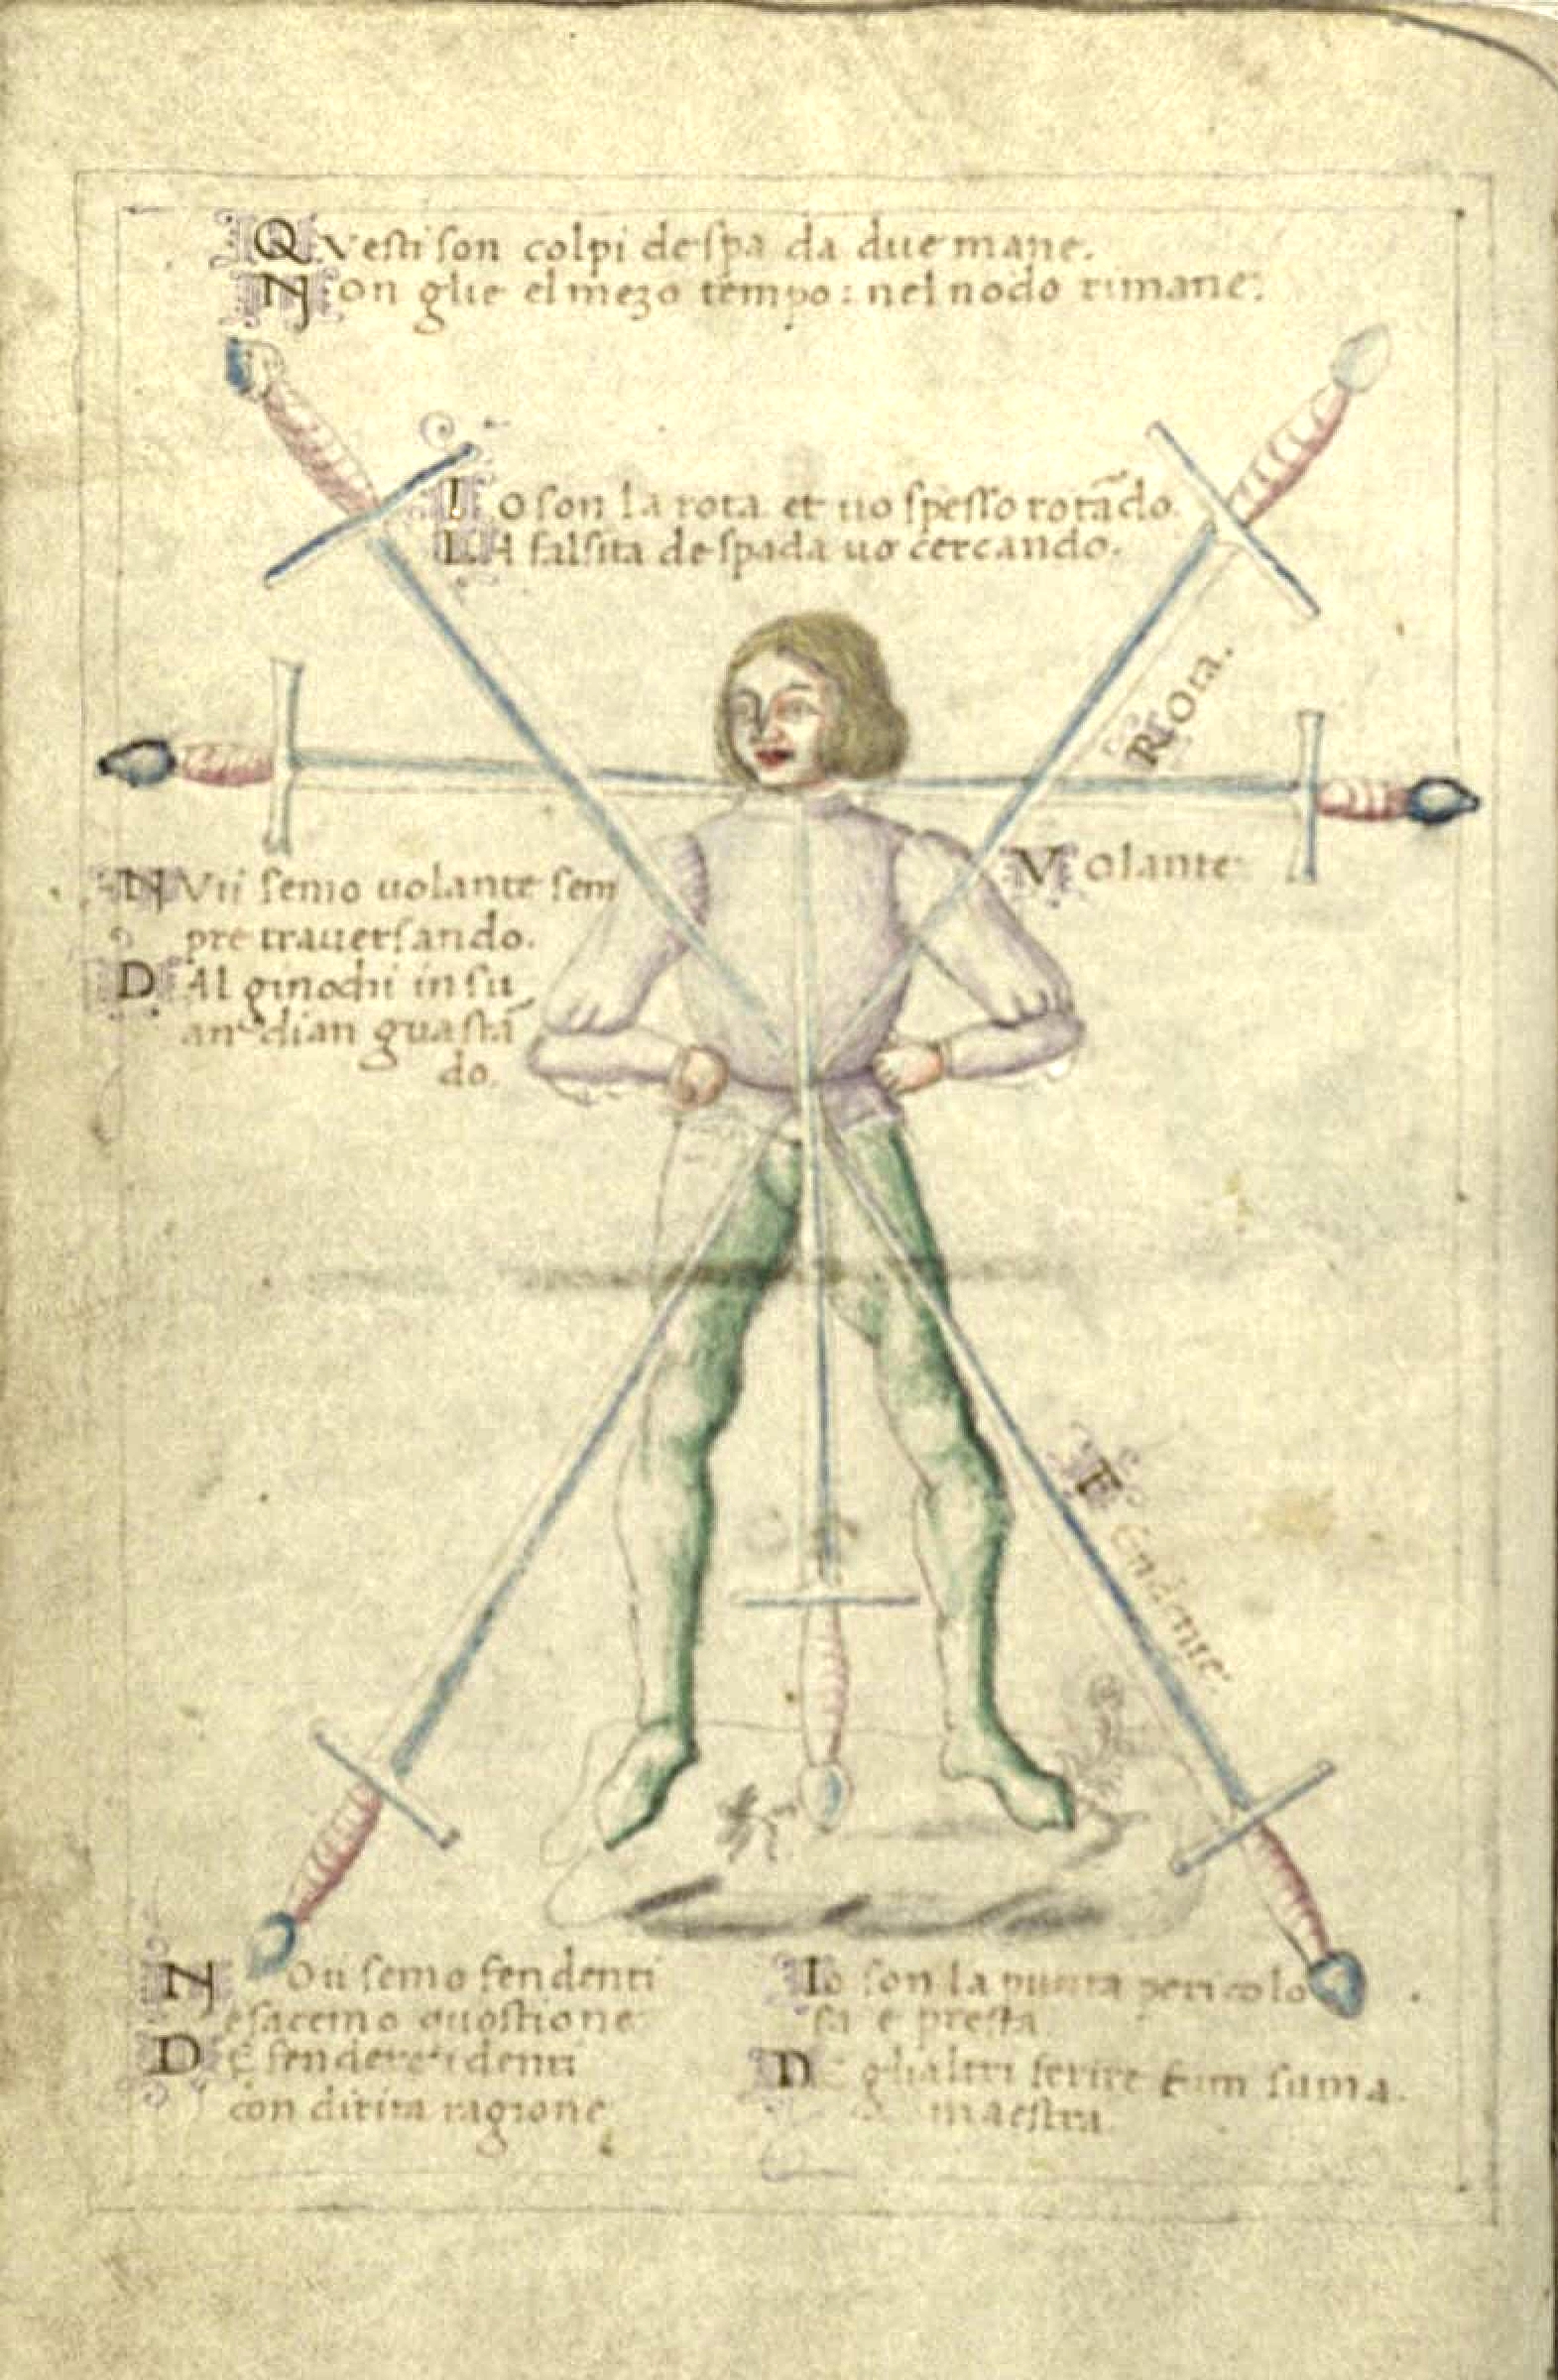 QVesti son colpi de spa da due mane.
Non glie el mezo tempo: nel nodo rimane:
Io son la rota et uo spesso rotãdo.
LA falsita de spada uo cercando.
Rota.
NVii semo uolante sem
pre trauersando.
DAl ginochi in su
dian guastã
do.
Volante
Fendente
Noii semo fendenti
e facemo questione
De fendere i denti
con dirita ragione
Io son la punta pericolo
sa e presta
De glialtri ferire suma
maestra.